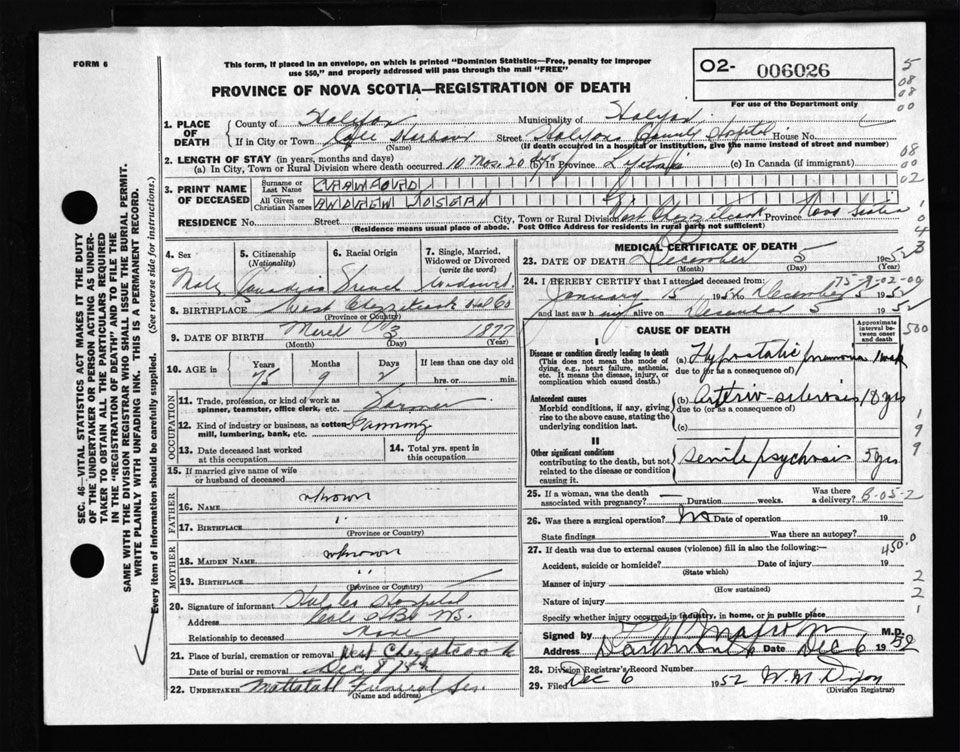 FORM 6
This form, if placed in an envelope, on which is printed "Dominion Statistics—Free, penalty for improper
use $50," and properly addressed will pass through the mail "FREE"
PROVINCE OF NOVA SCOTIA—REGISTRATION OF DEATH
O2- 006026
For use of the Department only
1. PLACE OF DEATH
County of Halifax Municipality of Halifax
If in City or Town Cole Harbour Street Halifax County Hospital House No.
(Name) (If death occurred in a hospital or institution, give the name instead of street and number)
2. LENGTH OF STAY (in years, months and days)
(a) In City, Town or Rural Division where death occurred 10 Mos. 20 (b) In Province (c) In Canada (if immigrant)
3. PRINT NAME OF DECEASED
Surname or Last Name CRAWFORD
All Given or Christian Names ANDREW JOSEPH
RESIDENCE No. Street City, Town or Rural Division West Chezzetcook Province Nova Scotia
(Residence means usual place of abode. Post Office Address for residents in rural parts not sufficient)
4. Sex Male
5. Citizenship (Nationality) Canadian
6. Racial Origin French
7. Single, Married, Widowed or Divorced (write the word) Widowed
8. BIRTHPLACE West Chezzetcook Hal Co
(Province or Country)
9. DATE OF BIRTH March 3 1877
(Month) (Day) (Year)
10. AGE in Years 75 Months 9 Days 2 If less than one day old
hrs. or min.
OCCUPATION
11. Trade, profession, or kind of work as spinner, teamster, office clerk, etc. Farmer
12. Kind of industry or business, as cotton mill, lumbering, bank, etc. Farming
13. Date deceased last worked at this occupation
14. Total yrs. spent in this occupation
15. If married give name of wife or husband of deceased
FATHER
16. NAME unknown
17. BIRTHPLACE "
(Province or Country)
MOTHER
18. MAIDEN NAME unknown
19. BIRTHPLACE "
(Province or Country)
20. Signature of informant Hospital
Address NS.
Relationship to deceased None
21. Place of burial, cremation or removal West Chezzetcook
Date of burial or removal Dec 8
22. UNDERTAKER Mattatall Funeral Ser.
(Name and address)
MEDICAL CERTIFICATE OF DEATH
23. DATE OF DEATH December 5 1952
(Month) (Day)
24. I HEREBY CERTIFY that I attended deceased from:
January 15 1952 to December 5 1952
and last saw him alive on December 5 1952
CAUSE OF DEATH
Approximate interval between onset and death
I
Disease or condition directly leading to death
(This does not mean the mode of dying, e.g., heart failure, asthenia, etc. It means the disease, injury, or complication which caused death.)
(a) Hypostatic pneumonia 1 wk
due to (or as a consequence of)
Antecedent causes
Morbid conditions, if any, giving rise to the above cause, stating the underlying condition last.
(b) Arterio-sclerosis 10 yrs
due to (or as a consequence of)
(c)
II
Other significant conditions
contributing to the death, but not related to the disease or condition causing it.
senile psychosis 5 yrs
25. If a woman, was the death associated with pregnancy? — Duration weeks. Was there a delivery?
26. Was there a surgical operation? No Date of operation 19
State findings Was there an autopsy?
27. If death was due to external causes (violence) fill in also the following:—
Accident, suicide or homicide? Date of injury 19
(State which)
Manner of injury
(How sustained)
Nature of injury
Specify whether injury occurred in industry, in home, or in public place
Signed by M.D.
Address Dartmouth Date Dec 6 1952
28. Division Registrar's Record Number
29. Filed Dec 6 1952 W. M. Dixon
(Division Registrar)
SEC. 46—VITAL STATISTICS ACT MAKES IT THE DUTY
OF THE UNDERTAKER OR PERSON ACTING AS UNDER-
TAKER TO OBTAIN ALL THE PARTICULARS REQUIRED
IN THE "REGISTRATION OF DEATH" AND TO FILE THE
SAME WITH THE DIVISION REGISTRAR WHO SHALL ISSUE THE BURIAL PERMIT.
WRITE PLAINLY WITH UNFADING INK. THIS IS A PERMANENT RECORD.
Every item of information should be carefully supplied. (See reverse side for instructions.)